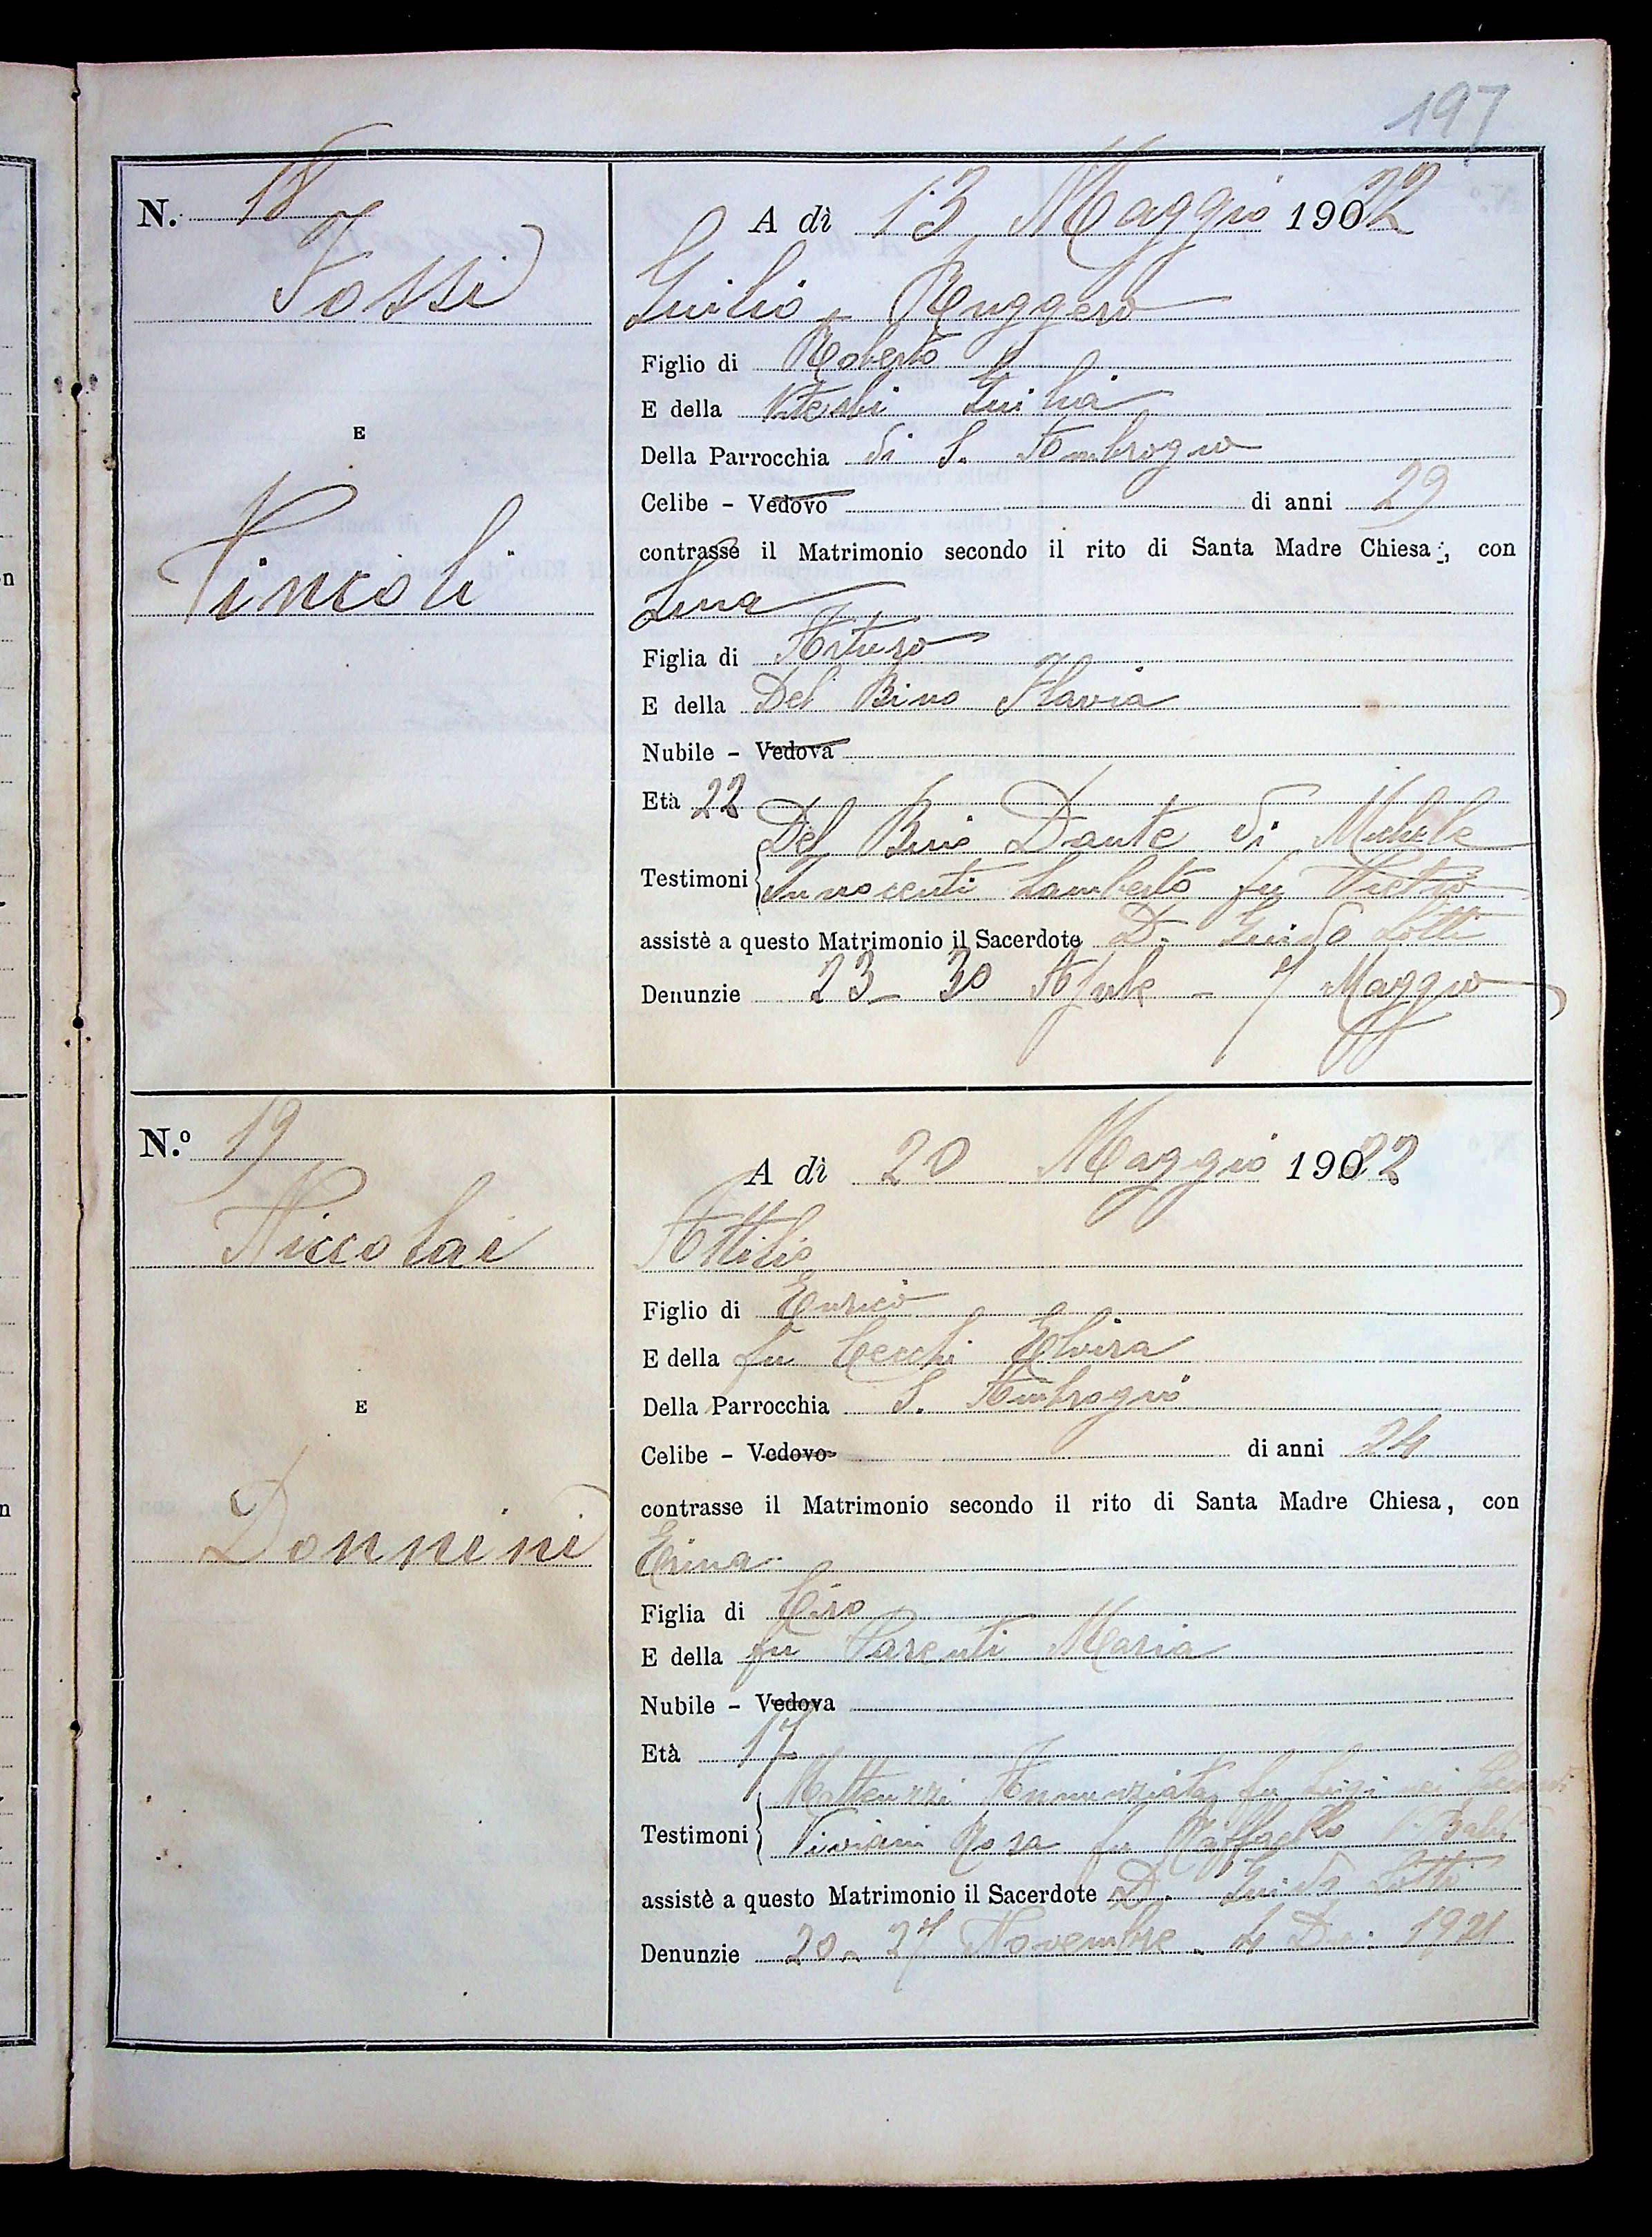 197
N. 18 A dì 13 Maggio 1922
Fossi Giulio - Ruggero
Figlio di Roberto
E della Giulia
Della Parrocchia di S. Ambrogio
E
Celibe - Vedovo di anni 29
contrasse il Matrimonio secondo il rito di Santa Madre Chiesa, con
Pincoli Lina
Figlia di Arturo
E della Del Bino Flavia
Nubile - Vedova
Età 22
Del Bino Dante di Michele
Testimoni Innocenti Lamberto fu Pietro
assistè a questo Matrimonio il Sacerdote D. Guido Lotti
Denunzie 23 - 30 Aprile - 7 Maggio
N.º 19 A dì 20 Maggio 1922
Niccolai Attilio
Figlio di Enrico
E della fu Cecchi Elvira
Della Parrocchia S. Ambrogio
E
Celibe - Vedovo di anni 24
contrasse il Matrimonio secondo il rito di Santa Madre Chiesa, con
Donnini Erina
Figlia di Ciro
E della fu Parenti Maria
Nubile - Vedova
Età 17
Matteuzzi Annunziata fu Luigi nei
Testimoni Viviani Rosa fu Raffaello
assistè a questo Matrimonio il Sacerdote D. Guido Lotti
Denunzie 20 - 27 Novembre - 4 Dic. 1921